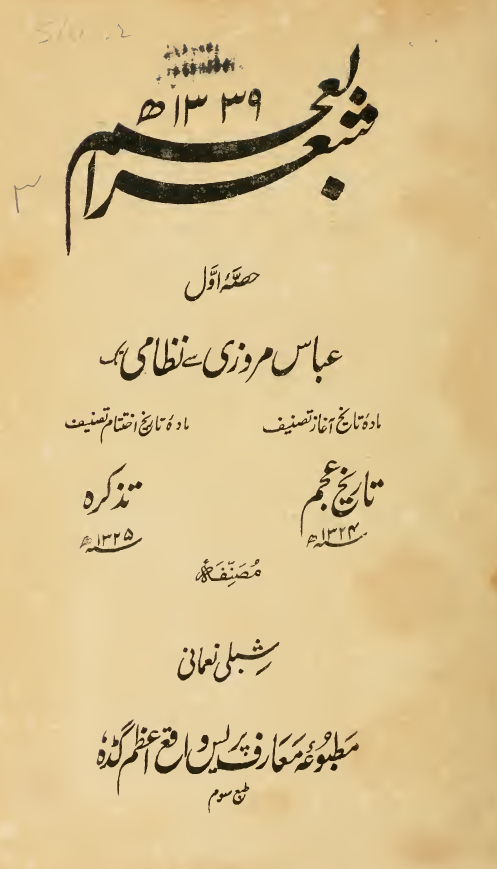 شعر العجم
۱۳۳۹ھ
۳
حصۂ اوّل
عباس مروزی سے نظامی تک
مادۂ تاریخ آغاز تصنیف
مادۂ تاریخ اختتام تصنیف
تاریخ عجم
تذکرہ
۱۳۲۴ھ
۱۳۲۵ھ
مُصَنِّفَۂ
شبلی نعمانی
مَطبُوعۂ مَعَارف پریس واقع اعظم گڈہ
طبع سوم